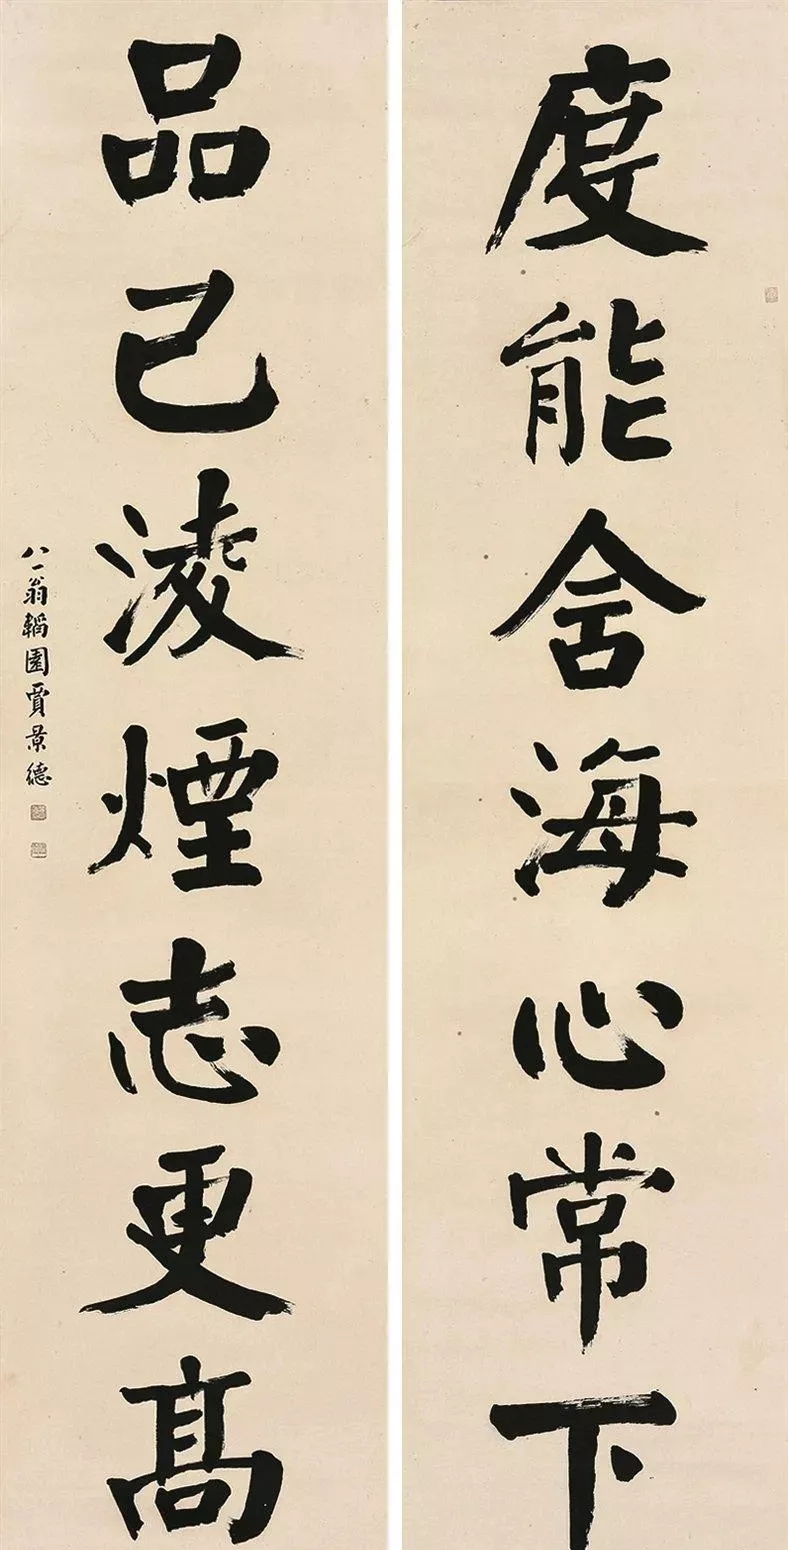 度能舍海心常下
品已淩煙志更髙
八一翁韜園賈景德